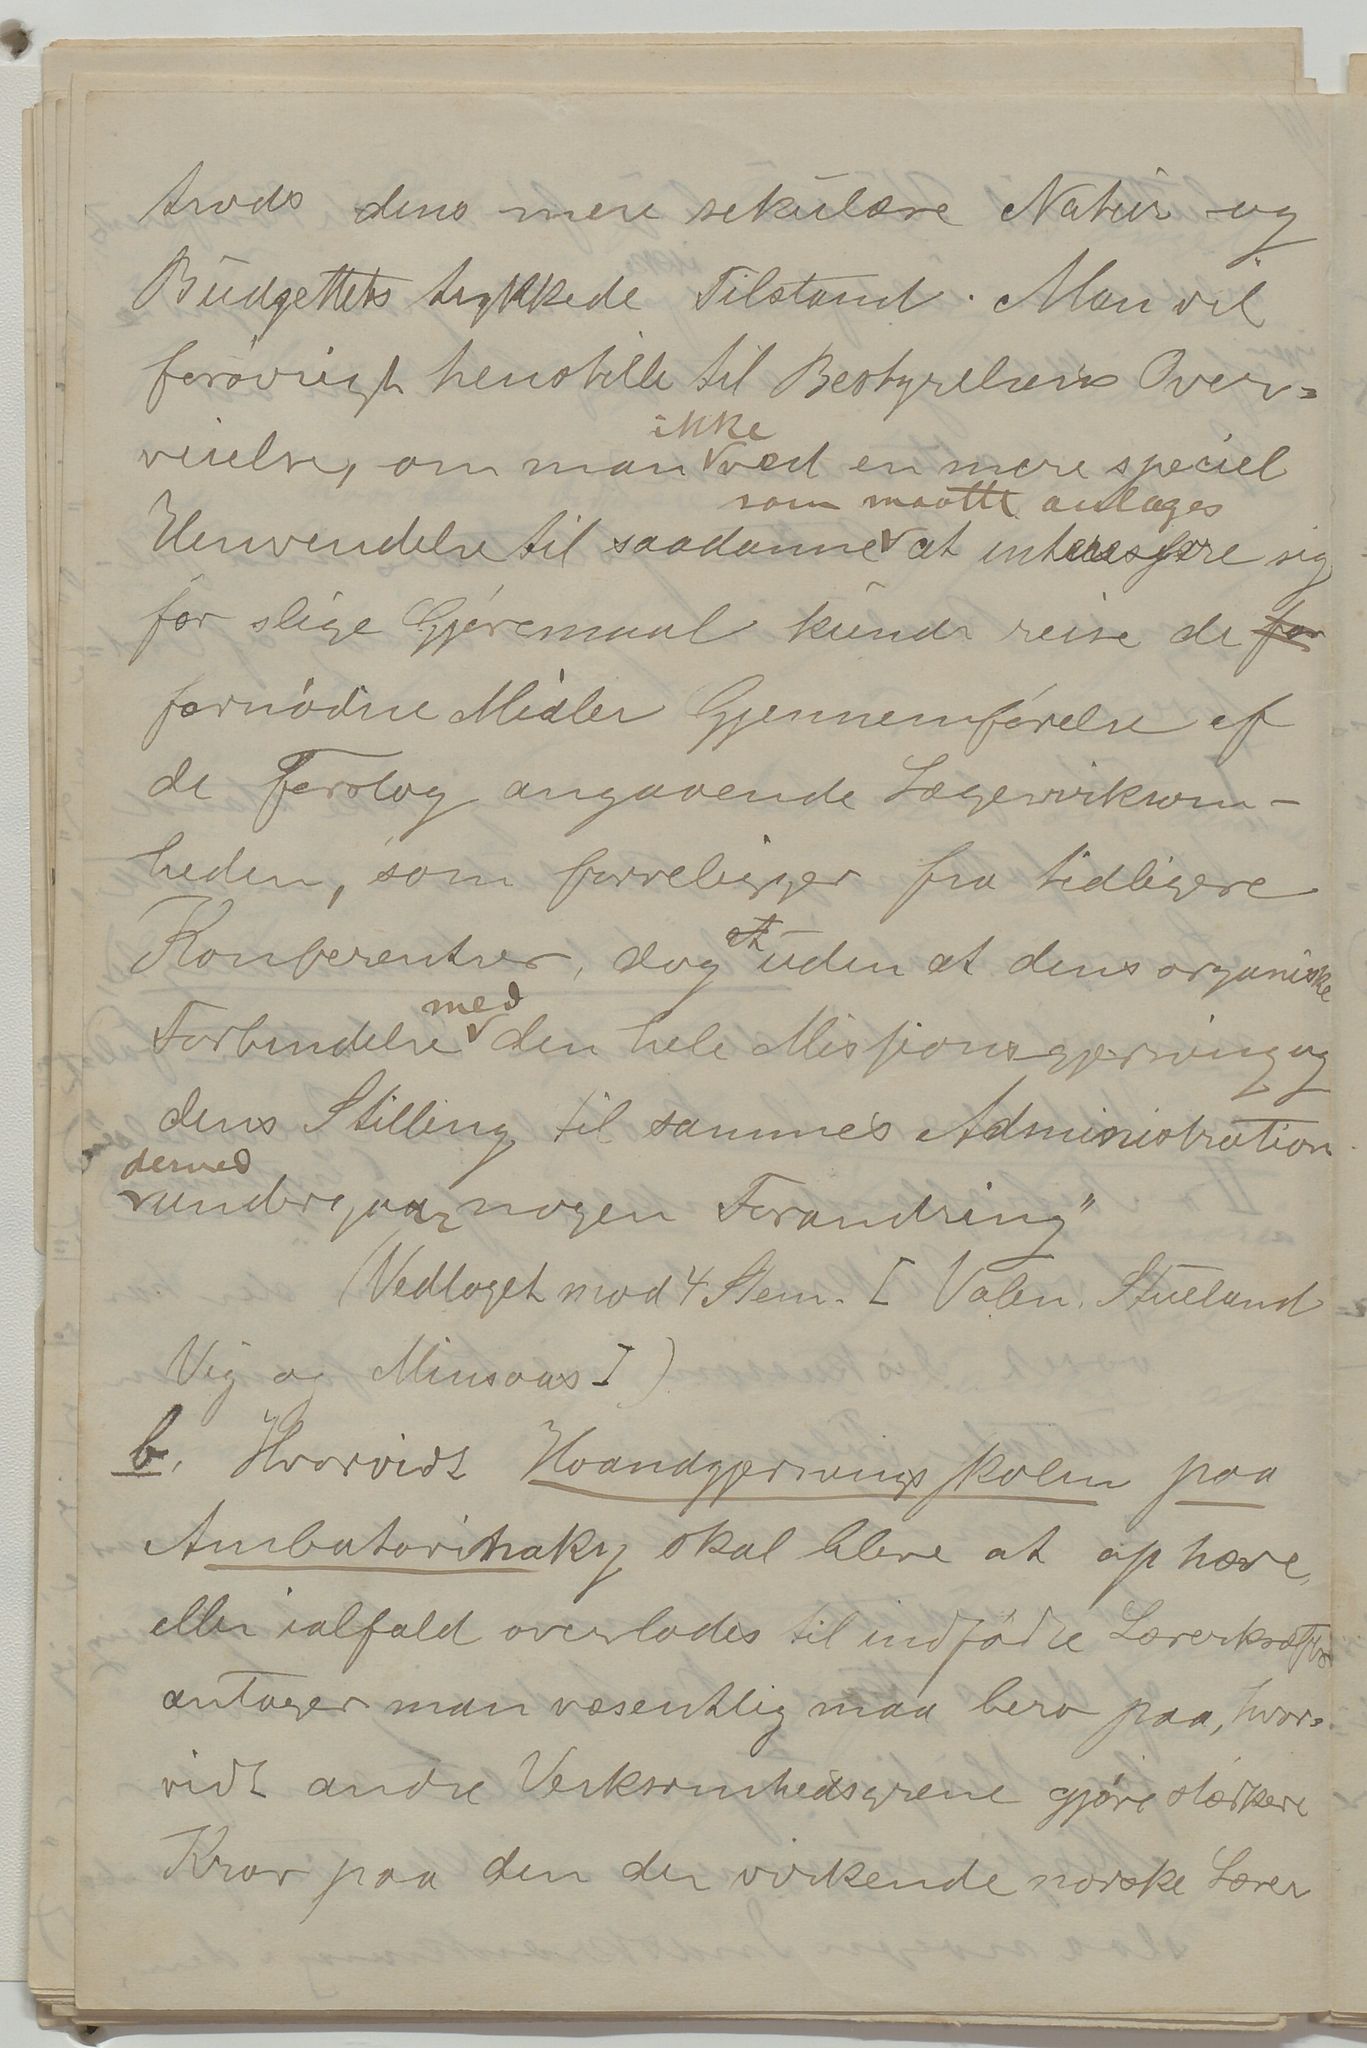 trods dens mere sekulære Natur og
Budgettets trykkede Tilstand. Man vil
forøvrigt henstille til Bestyrelsens Over-
veielse, om man ikke ved en mere speciel
Henvendelse til saadanne som maatte antages at interessere sig
for slige Gjøremaal kunde reise de for
fornødne Midler Gjennemførelse af
de Forslag angaaende Lægevirksom-
heden, som foreligger fra tidligere
Konferentser, dog at uden at dens organiske
Forbindelse med den hele Missionsgjerning og
dens Stilling til sammes Administration
derved undergaar nogen Forandring"
(Vedtaget mod 4 Stem. [Valen, Stueland
Vig og Minsaas])
b. Hvorvidt Haandgjerningsskolen paa
Ambatovinaky skal blive at ophæve,
eller ialfald overlades til indfødte Lærerkræfter
antager man væsentlig maa bero paa, hvor-
vidt andre Verksomhedsgrene gjøre stærkere
Krav paa den der virkende norske Lærer